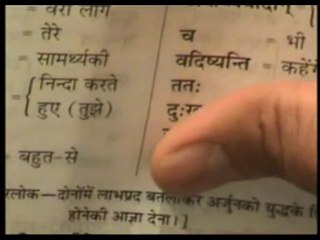 = वैरी लोग
= तेरे
= सामर्थ्यकी
= { निन्दा करते
हुए (तुझे)
बहुत-से
च = भी
वदिष्यन्ति = कहेंगे
ततः
लोक—दोनोंमें लाभप्रद बतलाकर अर्जुनको युद्धके
होनेकी आज्ञा देना।]